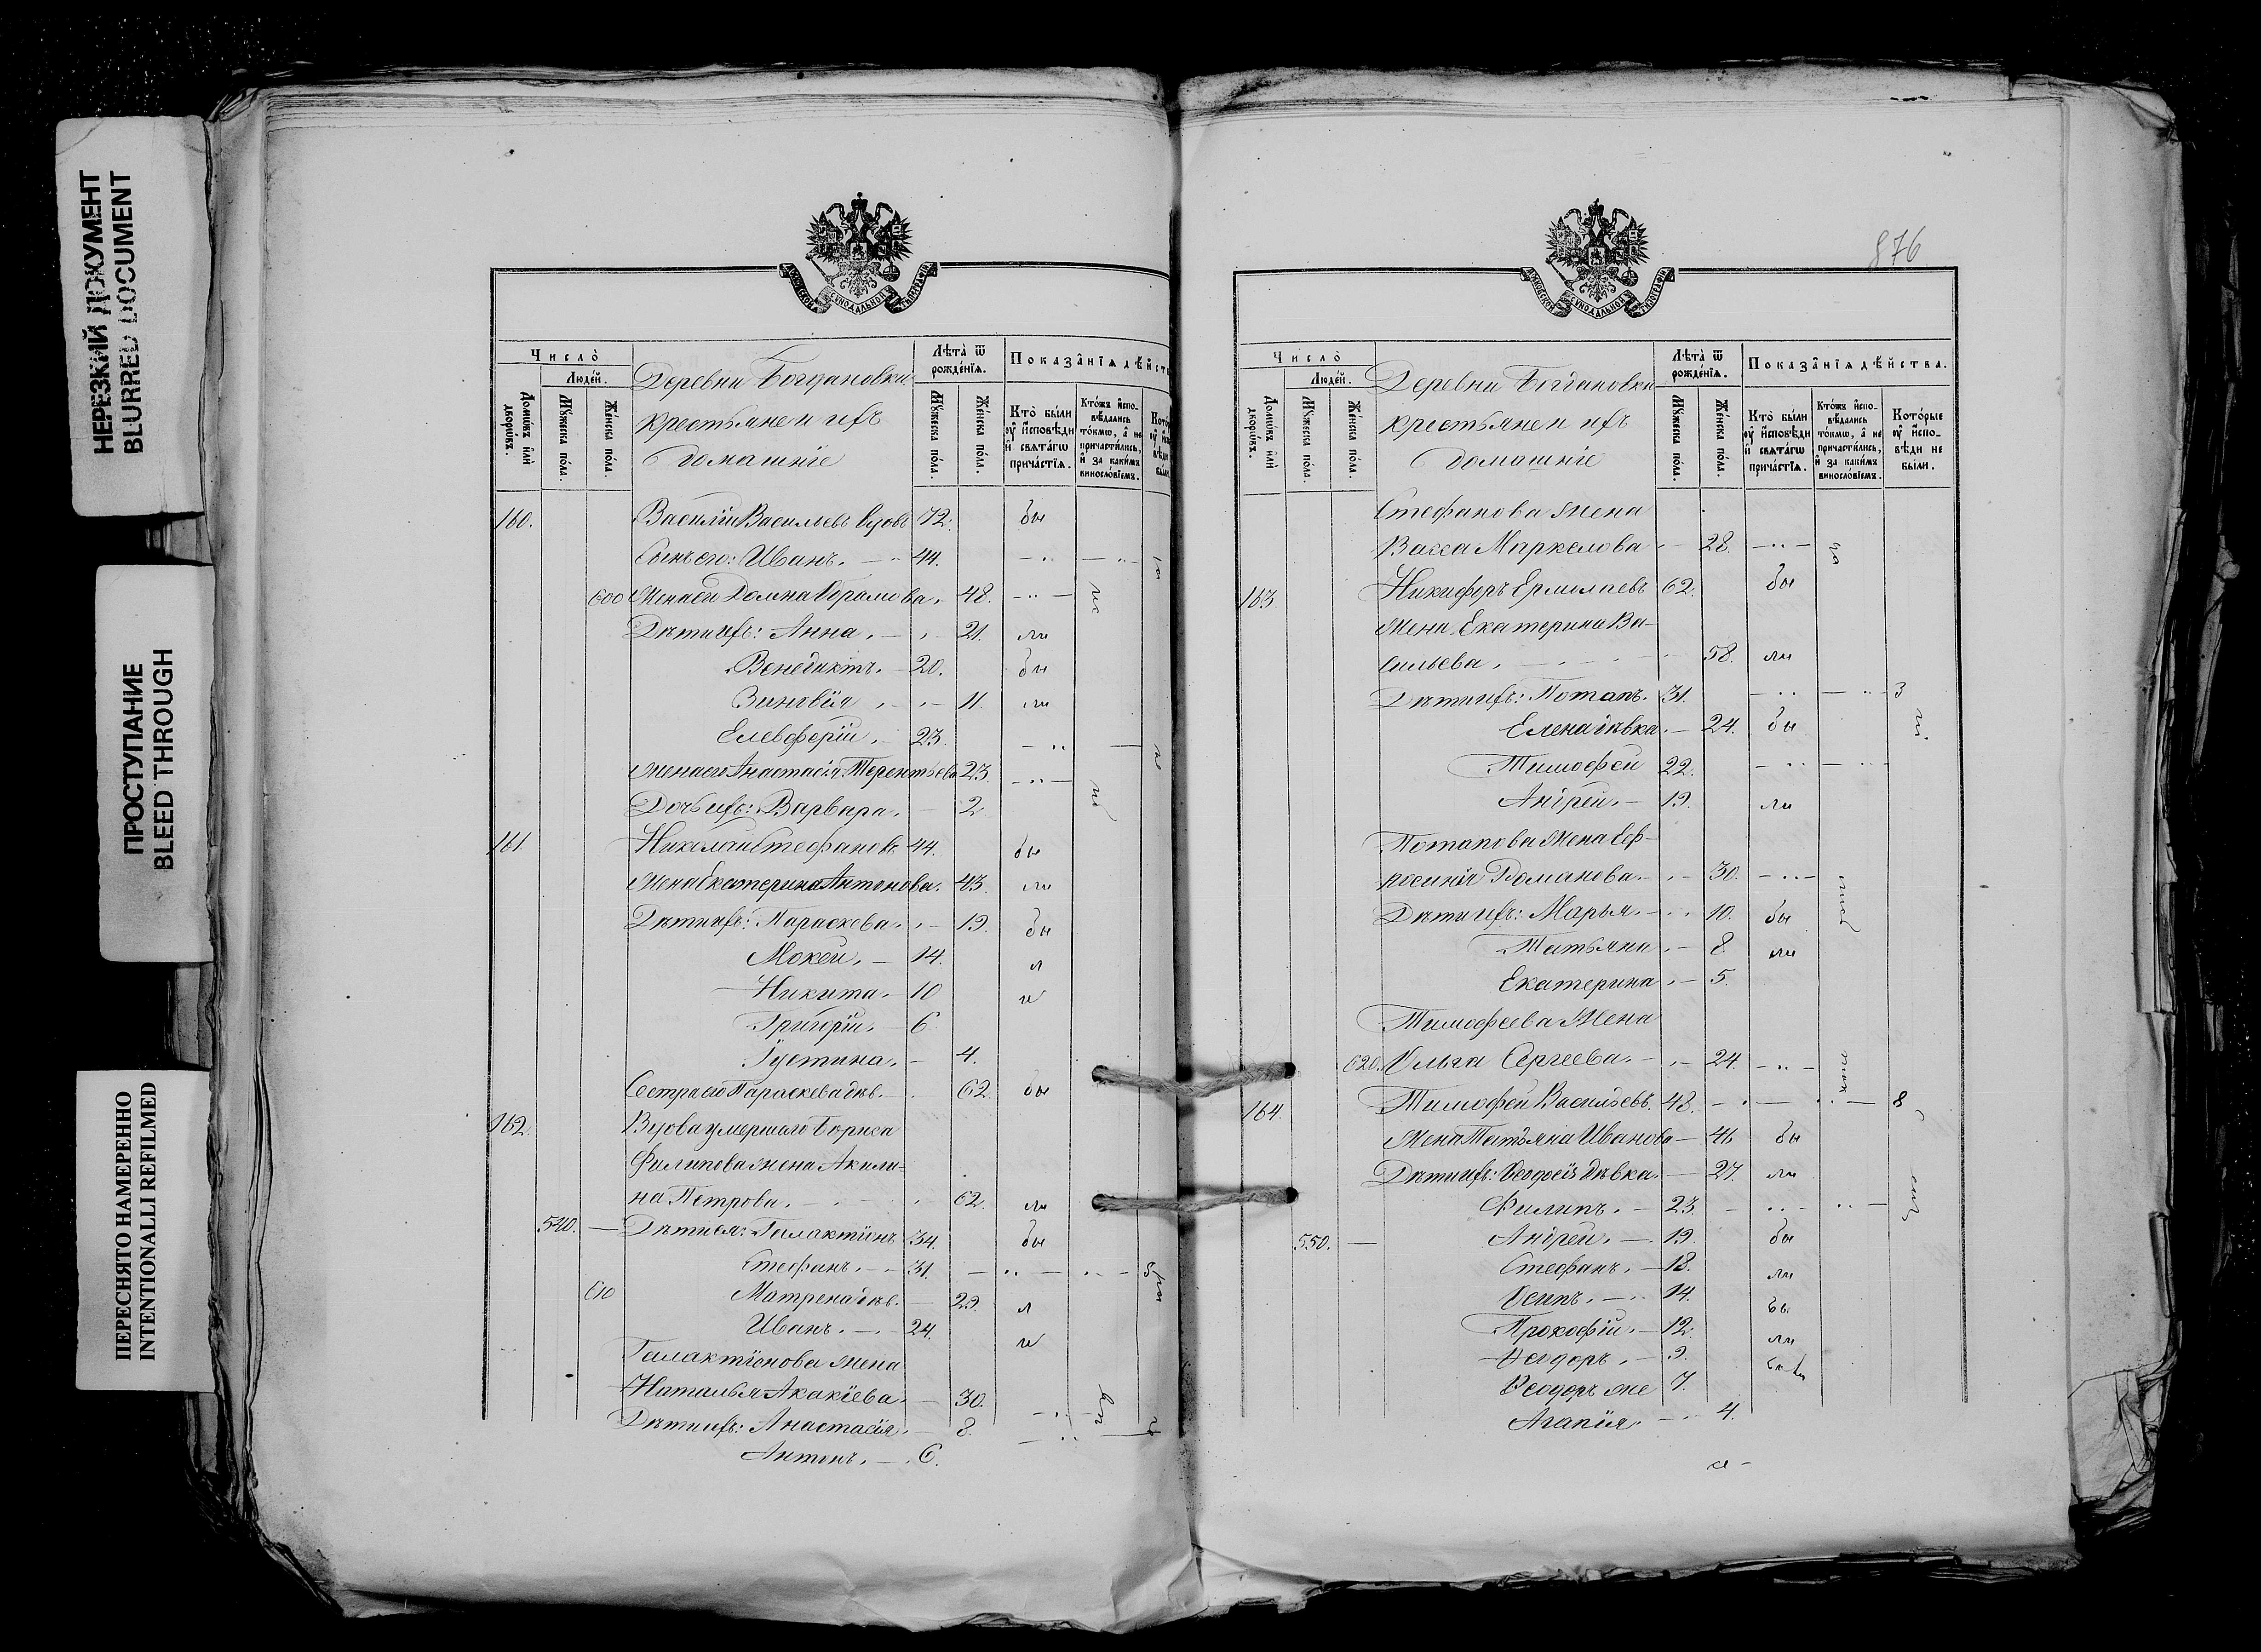 НЕРЕЗКИЙ ДОКУМЕНТ
BLURRED DOCUMENT
ПРОСТУПАНИЕ
BLEED THROUGH
ПЕРЕСНЯТО НАМЕРЕННО
INTENTIONALLI REFILMED
Число̀
Люде́й.
Домѡ́въ и҆лѝ дворѡ́въ.
Мꙋ́жеска по́ла.
Же́нска по́ла.
Деревни Богдановки
крестьяне и ихъ
домашніе
Лѣта̀ ѿ рожде́нїѧ.
Мꙋ́жеска по́ла.
Же́нска по́ла.
Показа̑нїѧ дѣ́йств
Кто̀ бы́ли оу҆ и҆сповѣди и҆ свѧта́гѡ прича́стїѧ.
Кто́жъ и҆спо-вѣ́дались то́кмѡ, а҆ не причасти́лись, и҆ за каки́мъ винословїемъ.
160. Василій Васильевъ вдовъ 72. бы
Сынъ его: Иванъ. 44.
600 Жена его Домна Абрамова. 48.
Дѣти ихъ: Анна. 21. ли
Венедиктъ. 20. бы
Зиновія 11. ли
Елевферій. 23.
Жена его Анастасія Терентьева 23.
Дочь ихъ: Варвара. 2.
161. Николай Стефановъ 44. бы
Жена Екатерина Антонова. 43. ли
Дѣти ихъ: Параскева. 19. бы
Мокей. 14. л
Никита. 10 и
Григорій. 6
Іустина. 4.
Сестра его Параскева дѣв. 62. бы
162. Вдова умершаго Бориса
Филипова жена Акили-
на Петрова. 62. ли
540. Дѣти ея: Галактіонъ 34. бы
Стефанъ. 31.
610 Матрена дѣв. 29. л
Иванъ. 24. и
Галактіонова жена
Наталья Акакіева. 30.
Дѣти ихъ: Анастасія. 8.
Антонъ. 6.
876
Число̀
Люде́й.
Домѡ́въ и҆лѝ дворѡ́въ.
Мꙋ́жеска по́ла.
Же́нска по́ла.
Деревни Богдановки
крестьяне и ихъ
домашніе
Лѣта̀ ѿ рожде́нїѧ.
Мꙋ́жеска по́ла.
Же́нска по́ла.
Показа̑нїѧ дѣ́йства.
Кто̀ бы́ли оу҆ и҆сповѣди и҆ свѧта́гѡ прича́стїѧ.
Кто́жъ и҆спо-вѣ́дались то́кмѡ, а҆ не причасти́лись, и҆ за каки́мъ винословїемъ.
Кото́рые оу҆ и҆спо-вѣди не бы́ли.
Стефанова жена
Васса Маркелова 28.
163. Никифоръ Ермилаевъ 62. бы
Жена Екатерина Ва-
сильева. 58. ли
Дѣти ихъ: Потапъ. 31. 3
Елена дѣвка. 24. бы
Тимофей 22.
Андрей. 19. ли
Потапова жена Еф-
росинія Романова. 30.
Дѣти ихъ: Марья. 10. бы
Татьяна. 8 ли
Екатерина. 5.
Тимофеева жена
620. Ольга Сергеева. 24.
164. Тимофей Васильевъ. 48. 8
Жена Татьяна Иванова 46 бы
Дѣти ихъ: Феофсія дѣвка. 27. ли
Филипъ. 23.
550. Андрей. 19. бы
Стефанъ. 18. ли
Осипъ. 14. бы
Прокофій. 12. ли
Феодоръ. 9.
Феодоръ же 7.
Агапія. 4.